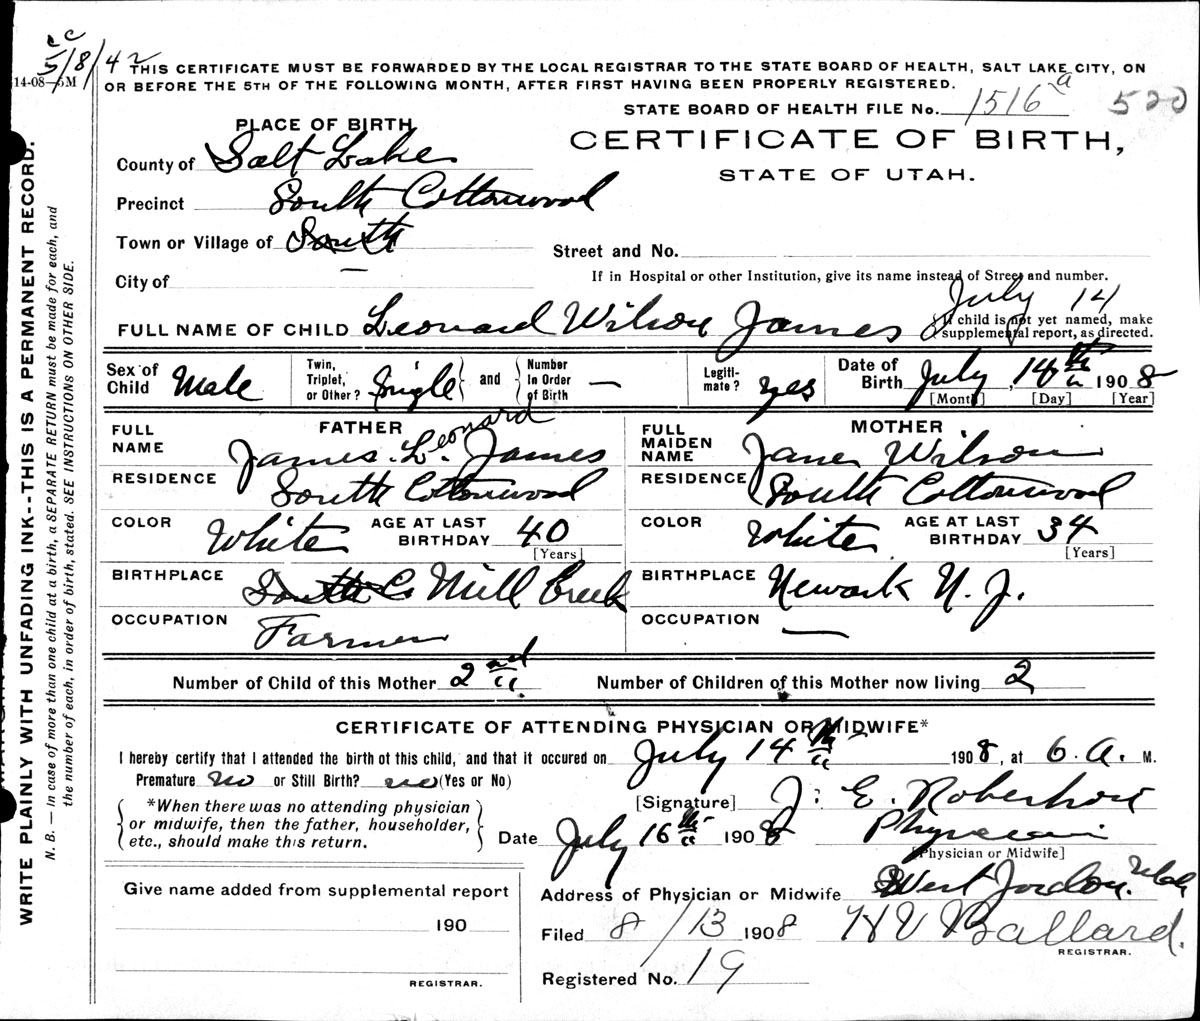 5/8/42
14-08—5M
THIS CERTIFICATE MUST BE FORWARDED BY THE LOCAL REGISTRAR TO THE STATE BOARD OF HEALTH, SALT LAKE CITY, ON
OR BEFORE THE 5TH OF THE FOLLOWING MONTH, AFTER FIRST HAVING BEEN PROPERLY REGISTERED.
STATE BOARD OF HEALTH FILE No. 1516 a 520
PLACE OF BIRTH
CERTIFICATE OF BIRTH,
STATE OF UTAH.
County of Salt Lake
Precinct South Cottonwood
Town or Village of South
Street and No.
City of —
If in Hospital or other Institution, give its name instead of Street and number.
July 14
FULL NAME OF CHILD Leonard Wilson James
{If child is not yet named, make
supplemental report, as directed.
Sex of Child Male
Twin, Triplet, or Other? Single } and { Number In Order of Birth —
Legiti-mate? yes
Date of Birth July, 14th 1908
[Month] [Day] [Year]
FATHER
FULL NAME James L. Leonard James
RESIDENCE South Cottonwood
COLOR White AGE AT LAST BIRTHDAY 40
[Years]
BIRTHPLACE South C. Mill Creek
OCCUPATION Farmer
MOTHER
FULL MAIDEN NAME Jane Wilson
RESIDENCE South Cottonwood
COLOR White AGE AT LAST BIRTHDAY 34
[Years]
BIRTHPLACE Newark N. J.
OCCUPATION —
Number of Child of this Mother 2nd Number of Children of this Mother now living 2
CERTIFICATE OF ATTENDING PHYSICIAN OR MIDWIFE*
I hereby certify that I attended the birth of this child, and that it occured on July 14th 1908, at 6 A. M.
Premature no or Still Birth? no (Yes or No)
*When there was no attending physician
or midwife, then the father, householder,
etc., should make this return.
[Signature] J. E. Robertson
Date July 16th 1908 Physician
[Physician or Midwife]
Address of Physician or Midwife West Jordan, Utah
Filed 8/13 1908 H V Ballard.
REGISTRAR.
Registered No. 19
Give name added from supplemental report
190
REGISTRAR.
WRITE PLAINLY WITH UNFADING INK--THIS IS A PERMANENT RECORD.
N. B. — In case of more than one child at a birth, a SEPARATE RETURN must be made for each, and
the number of each, in order of birth, stated. SEE INSTRUCTIONS ON OTHER SIDE.